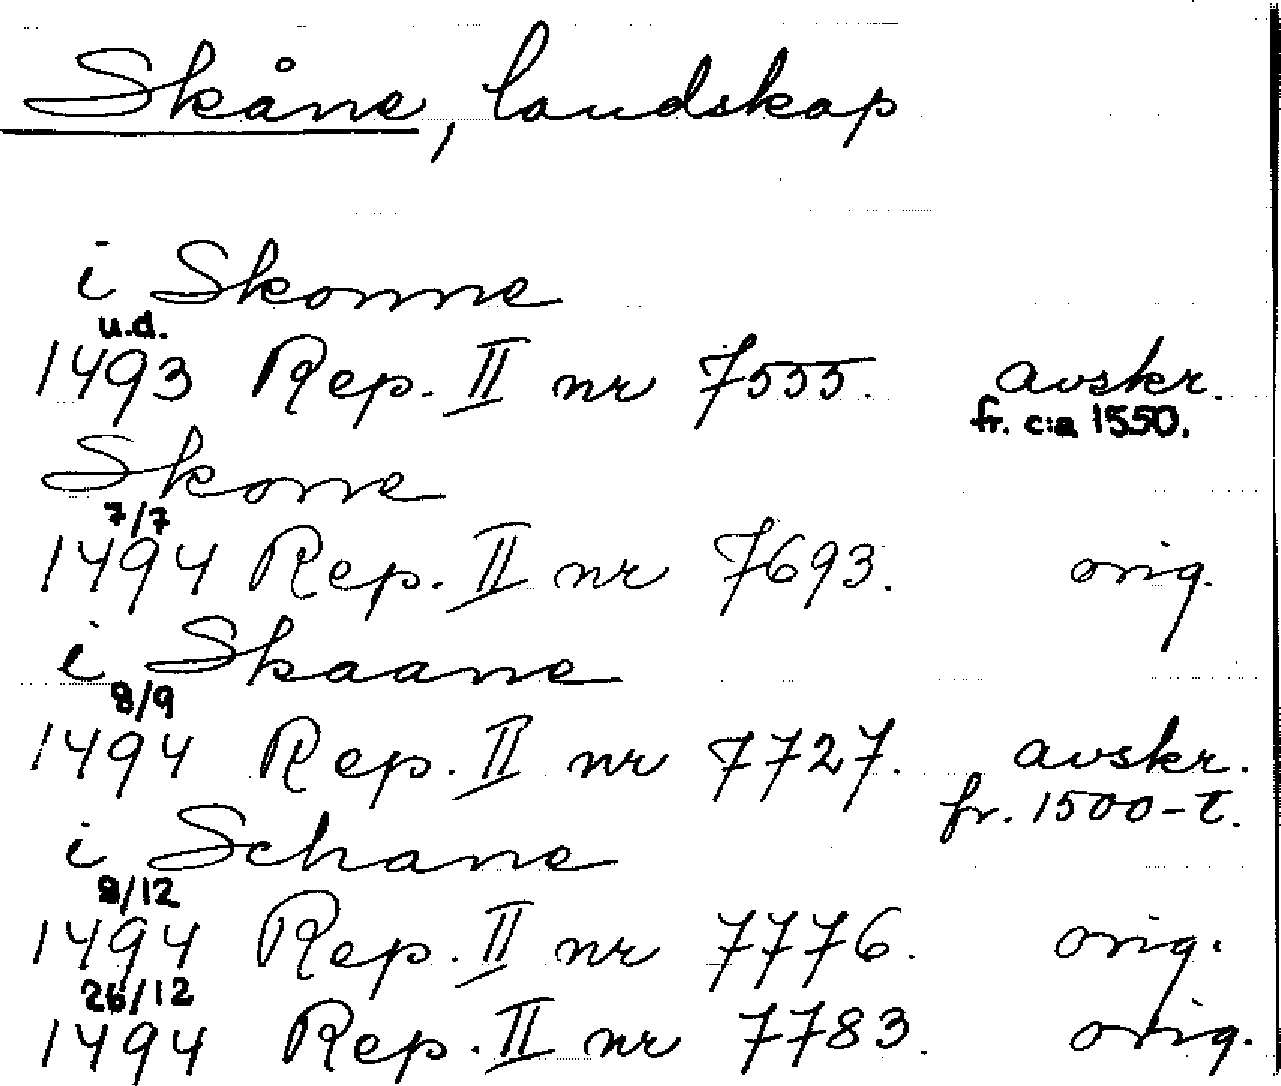 Skåne, landskap
i Skonne
u.d.
1493 Rep. II nr 7555. avskr.
fr. c:a 1550.
Skone
7/7
1494 Rep. II nr 7693. orig.
i Skaane
8/9
1494 Rep. II nr 7727. avskr.
fr. 1500-t.
i Schane
8/12
1494 Rep. II nr 7776. orig.
26/12
1494 Rep. II nr 7783. orig.